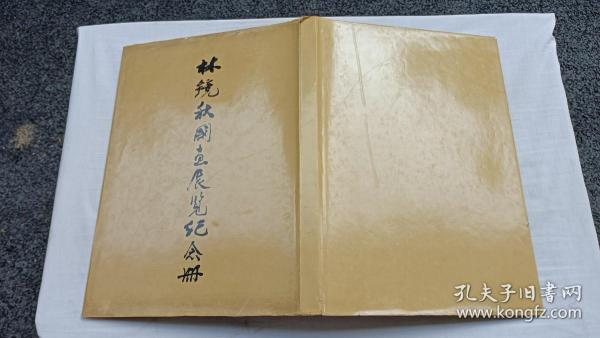 林镜秋国画展览纪念册
孔夫子旧书网
www.kongfz.com